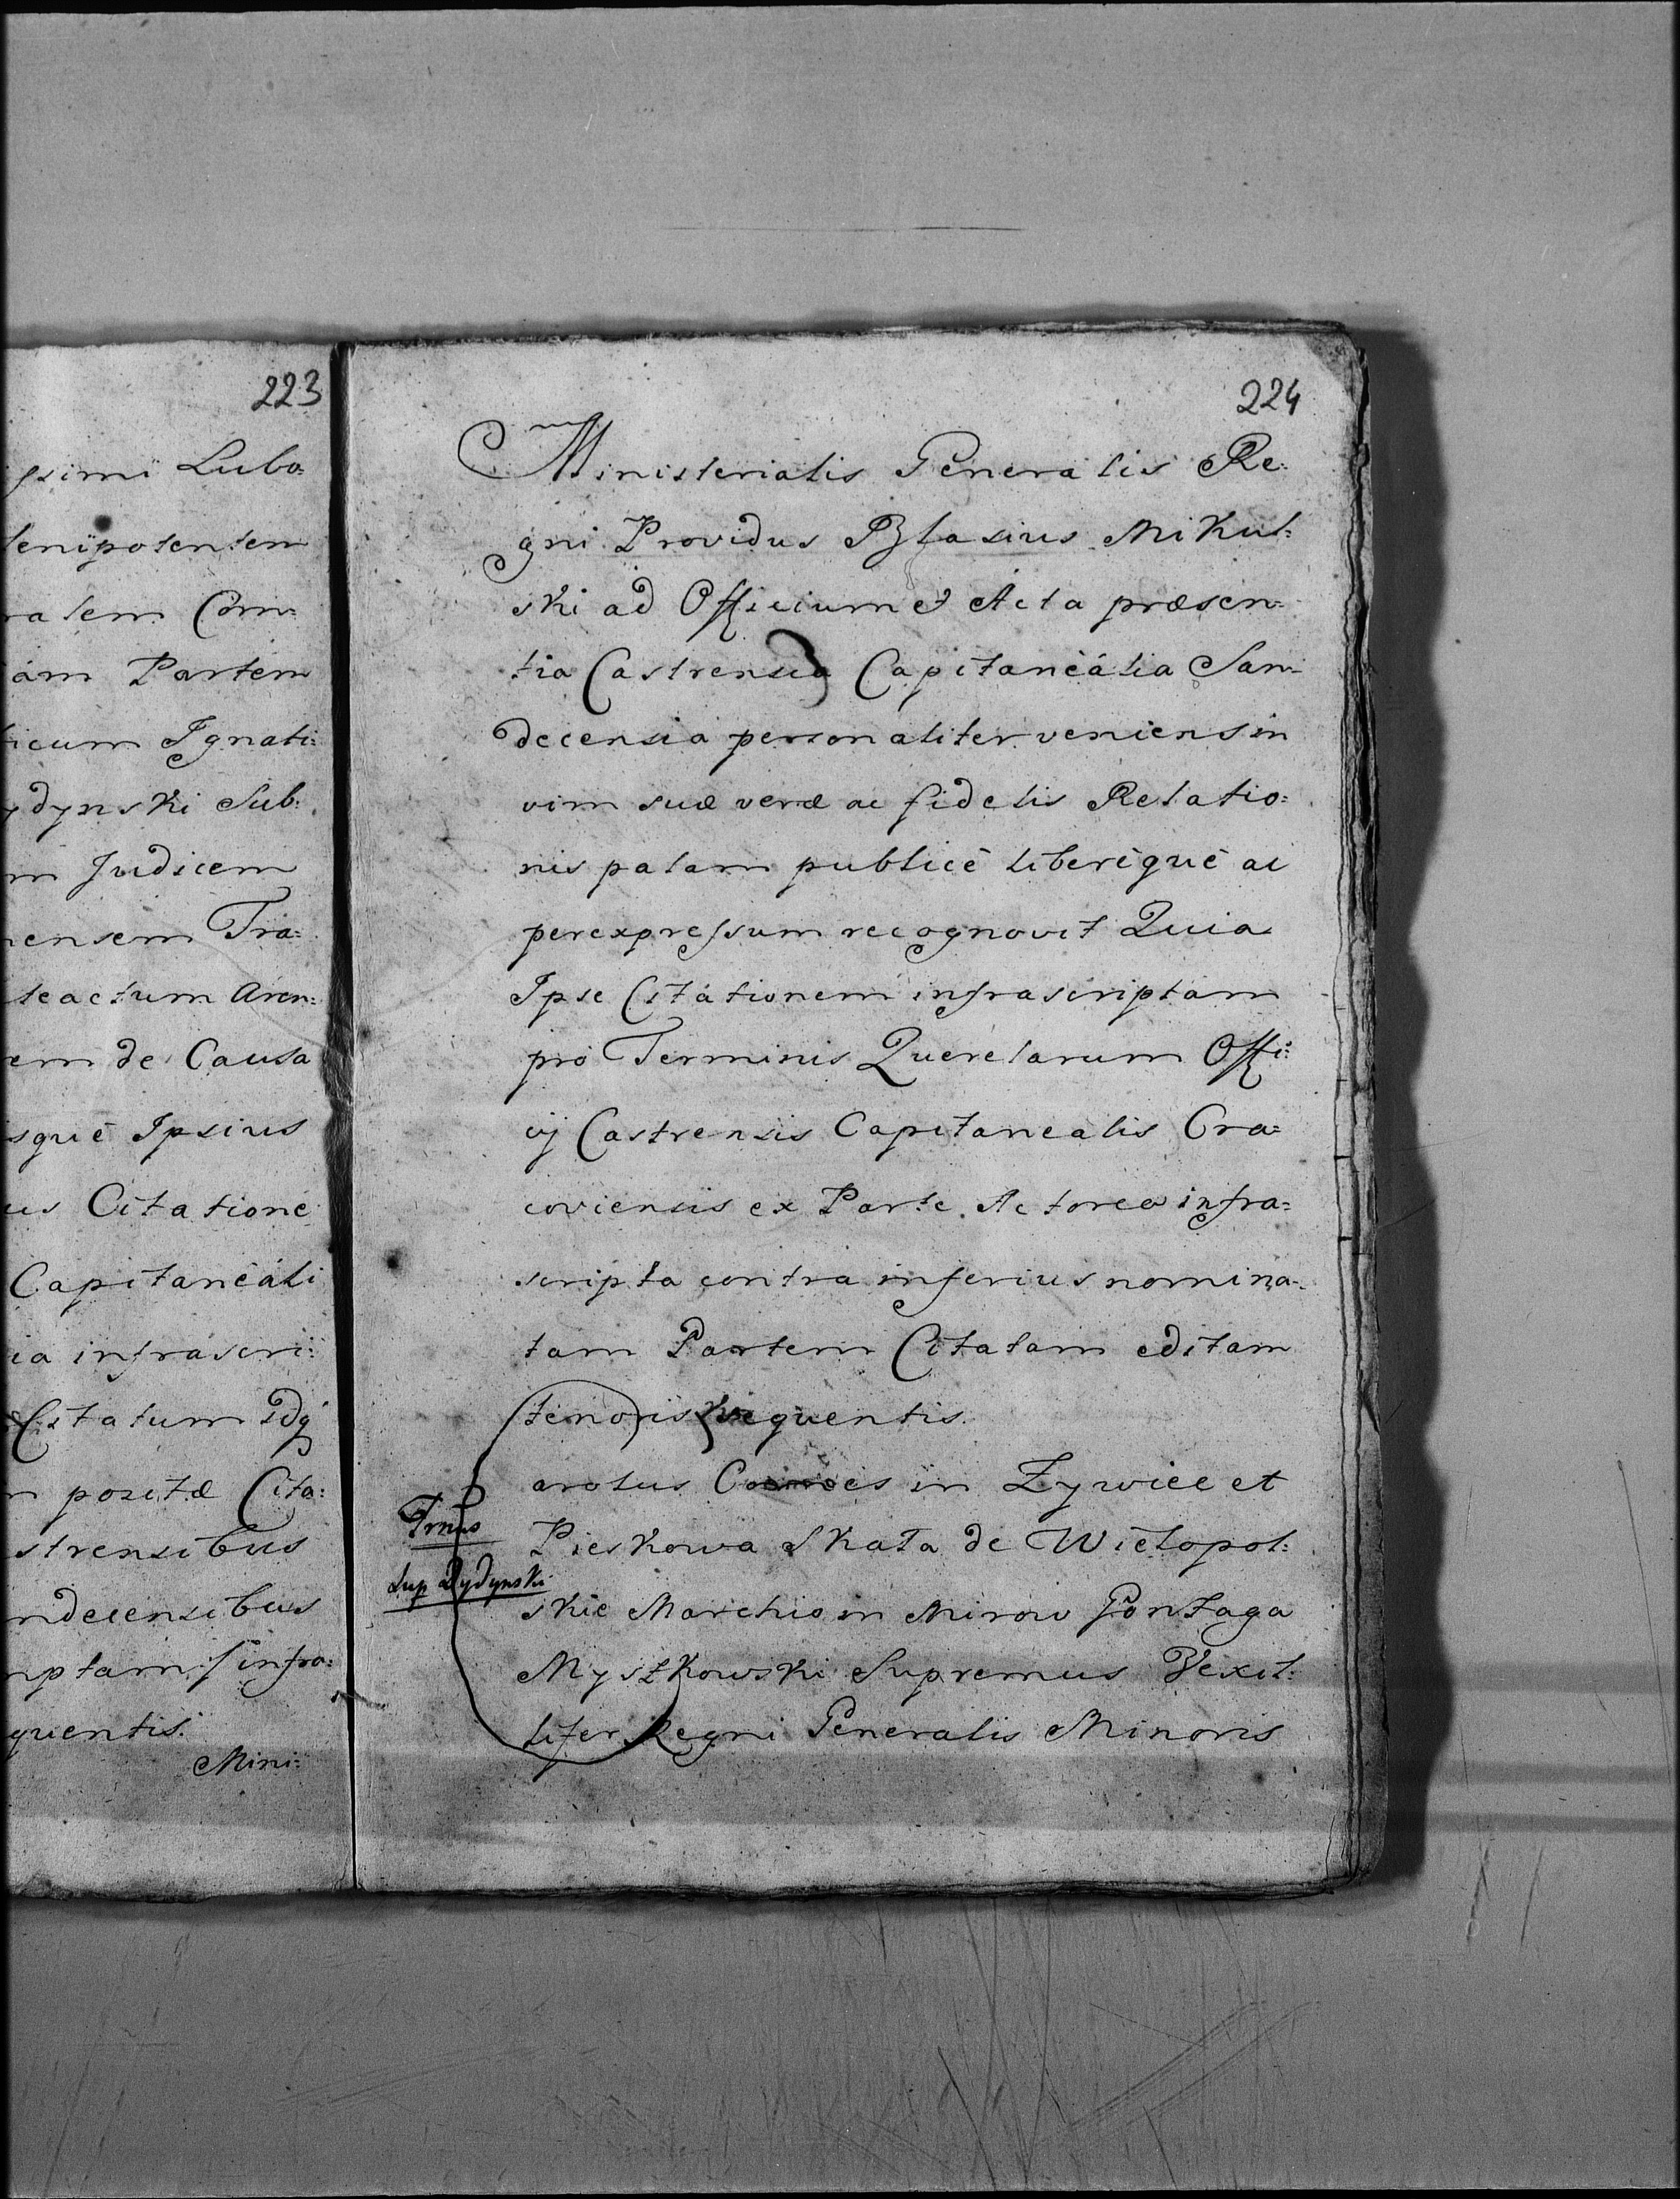 223
ssimi Lubo:
lenipotentem
ralem Com:
am Partem
icum Ignati:
ydynski Sub:
m Judicem
nensem Tra:
teactum Aren:
em de Causa
isquè Ipsius
us Citationè
Capitanèáli
ia infrascri:
Citatum idq
n positæ Cita:
strensibus
ndecensibus
nptam infra:
quentis.
Mini:
224
Ministerialis Generalis Re:
gni Providus Blasius Mikul:
ski ad Officium et Acta præsen:
tia Castrensia Capitanèália San:
decensia personaliter veniens in
vim suæ veræ ac fidelis Relatio:
nis palam publicè liberèquè ac
perexpressum recognovit Quia
Ipse Citátionem infrascriptam
pro Terminis Querelarum Offi:
cij Castrensis Capitanealis Cra:
coviensis ex Parte Actorea infra:
scripta contra inferius nomina:
tam Partem Citatam editam
tenoris sequentis.
arolus Comes in Zywiec et
Pieskowa Skała de Wielopol:
skie Marchio in Mirow Gonzaga
Myszkowski Supremus Vexil:
lifer Regni Generalis Minoris
Trnus
Sup Dydynski